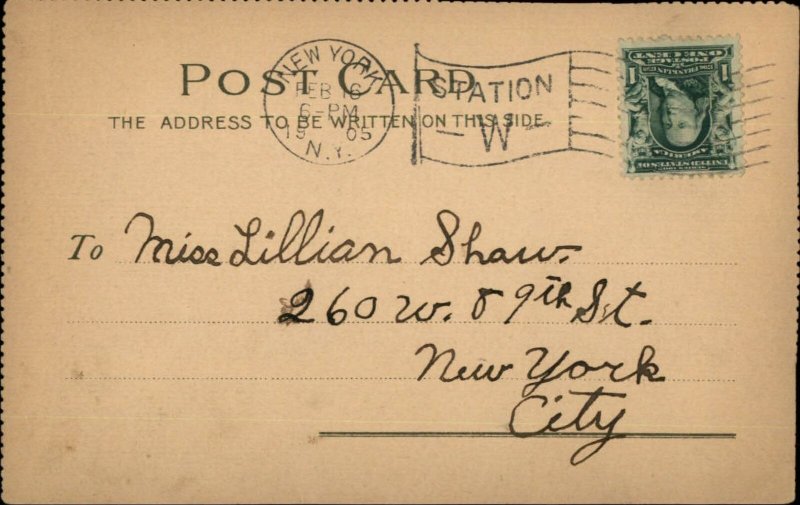 POST CARD
THE ADDRESS TO BE WRITTEN ON THIS SIDE.
NEW YORK
FEB 16
6-PM
19 05
N.Y.
STATION
W
ONE CENT
POSTAGE
FRANKLIN
1 1
AMERICA
UNITED STATES OF
To Miss Lillian Shaw.
260 W. 89th St.
New York
City